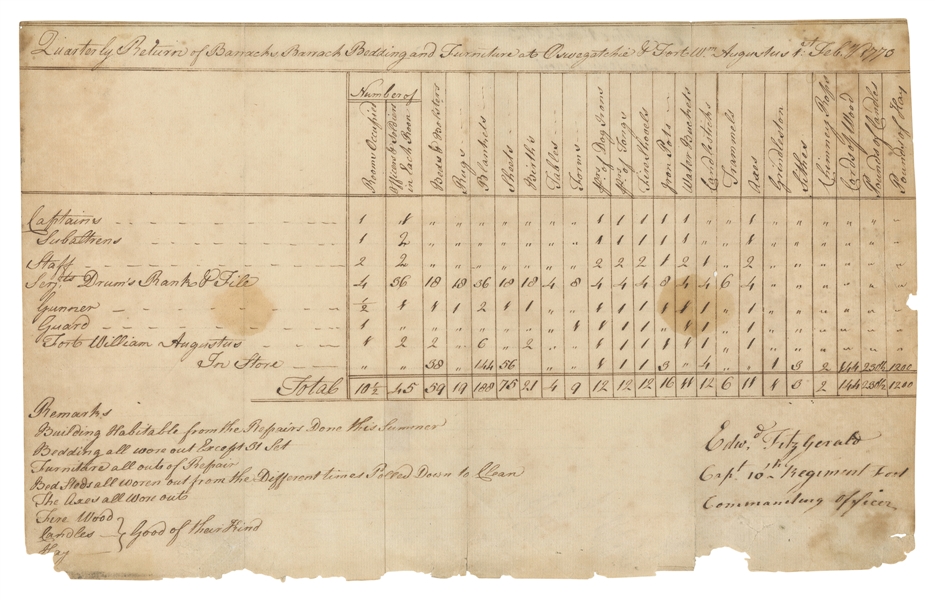 Quarterly Return of Barracks Barrack Bedding and Furniture at Oswegatchie & Fort Wm. Augustus 1st Feb.ry 1770
Number of
Rooms Occupied
Officers & Soldiers in Each Room
Beds & Bolsters
Rugs
Blankets
Sheets
Births
Tables
Forms
prs. of Dog Irons
prs. of Tongs
Fire Shovels
Iron Pots
Water Buckets
Candlesticks
Trammels
Axes
Grindleston
Sithes
Chimney Rops
Cords of Wood
Pounds of Candles
Pounds of Hay
Captains 1 1 " " " " " " " 1 1 1 1 1 " " 1 " " " " " "
Subaltrens 1 2 " " " " " " " 1 1 1 1 1 " " 1 " " " " " "
Staff 2 2 " " " " " " " 2 2 2 1 2 1 " 2 " " " " " "
Serjts Drum's Rank & File 4 36 18 18 36 18 18 4 8 4 4 4 8 4 4 6 4 " " " " " "
Gunner ½ 1 1 1 2 1 1 " " 1 1 1 1 1 1 " 1 " " " " " "
Guard 1 " " " " " " " 1 1 1 1 1 1 1 " 1 " " " " " "
Fort William Augustus 1 2 2 " 6 " 2 " " 1 1 1 1 1 1 " 1 " " " " " "
In Store " " 38 " 144 56 " " " 1 1 1 3 " 4 " " 1 3 2 144 230½ 1200
Total 10½ 45 59 19 188 75 21 4 9 12 12 12 16 11 12 6 11 1 3 2 144 230½ 1200
Remarks
Building Habitable from the Repairs Done this Summer
Bedding all wore out Except 31 Set
Furniture all out of Repair
Bed Steds all woren out from the Defferent times Polled Down to Clean
The Axes all wore out
Fire Wood
Candles
Hay
Good of their Kind
Edwd. Fitz Gerald
Capt. 10th Regiment Foot
Commanding Officer